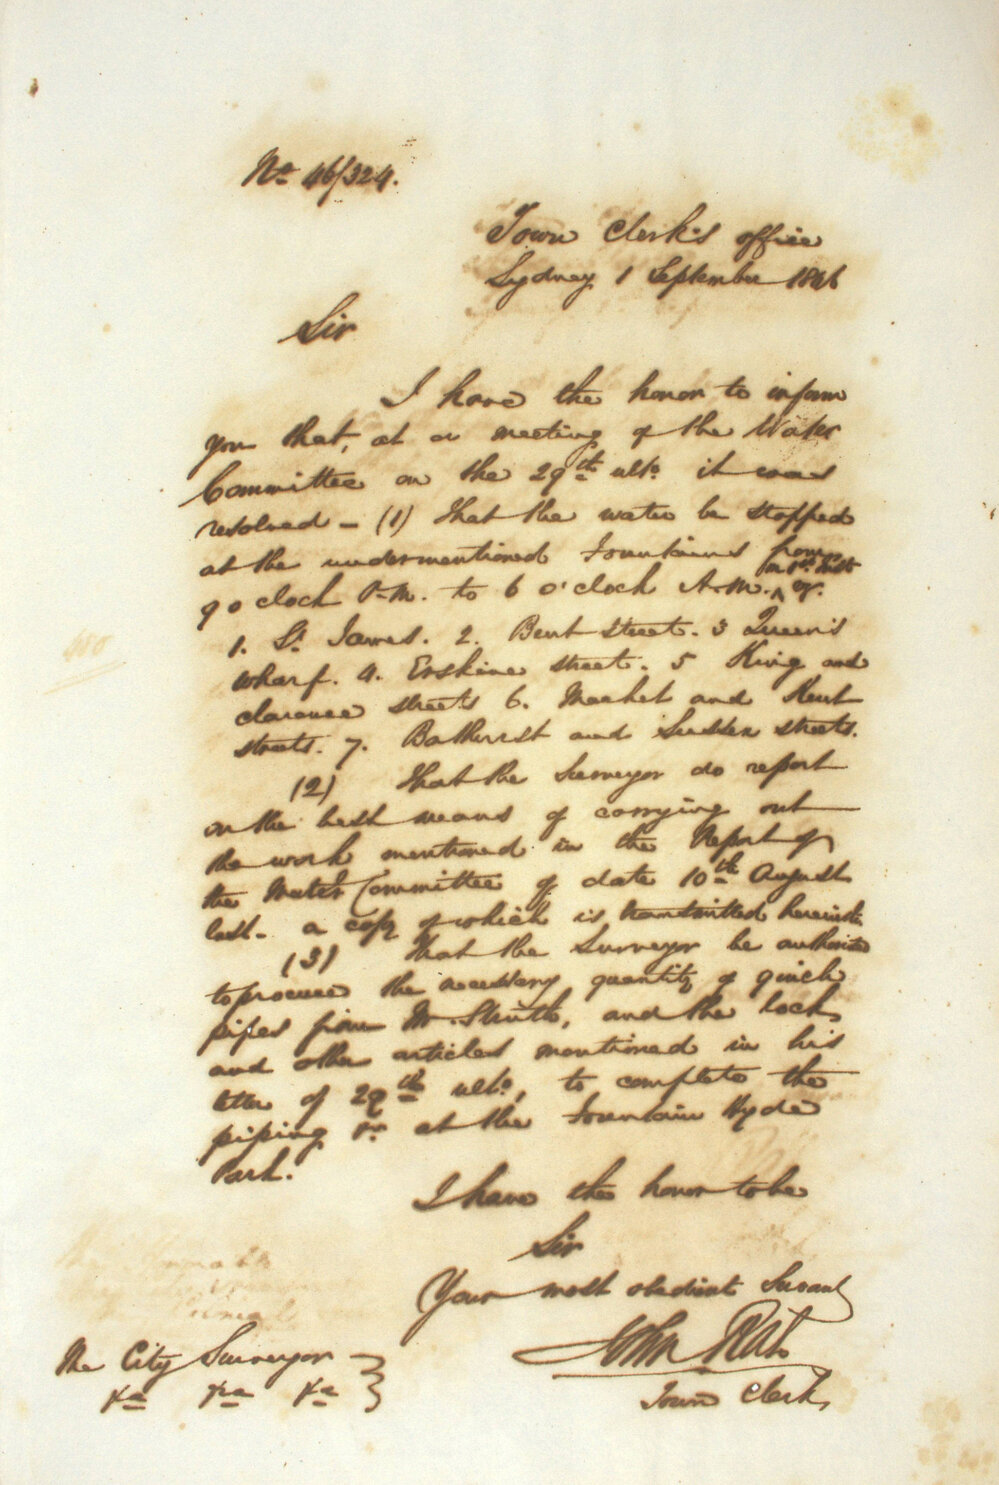 No 46/324.
Town Clerk's office
Sydney 1 September 1846
Sir
I have the honor to inform
you that, at a meeting of the Water
Committee on the 29th ulto. it was
resolved - (1) That the water be stopped
at the undermentioned Fountains from
9 o clock P.M. to 6 o'clock A.M.
1. St. James. 2. Bent street. 3 Queen's
wharf. 4. Erskine street. 5 King and
clarence streets 6. Market and Kent
streets. 7. Bathurst and Sussex streets.
(2) That the Surveyor do report
on the best means of carrying out
the work mentioned in the Report of
the Water Committee of date 10th August
last - a copy of which is transmitted herewith.
(3) That the Surveyor be authorized
to procure the necessary quantity of 9 inch
pipes from Mr. Struth, and the cock,
and other articles mentioned in his
letter of 29th ulto., to complete the
piping at the Fountain Hyde
Park.
I have the honor to be
Sir
Your most obedient Servant
John Rae
Town Clerk
The City Surveyor
&c &c &c